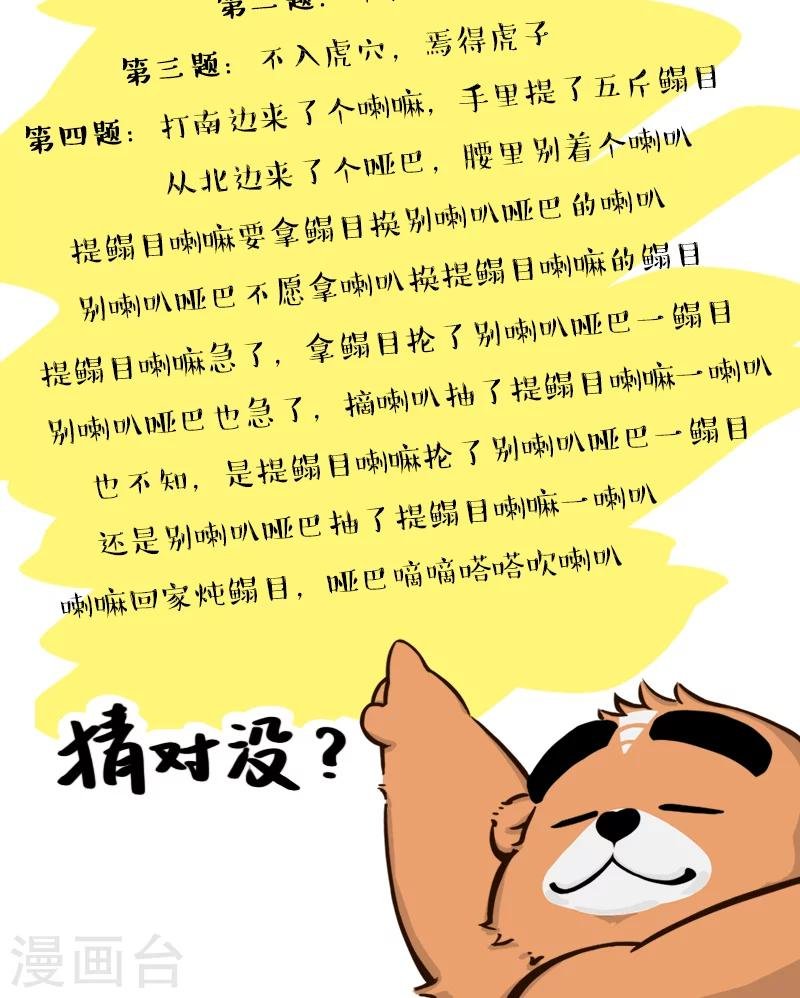 第二题：
第三题：不入虎穴，焉得虎子
第四题：打南边来了个喇嘛，手里提了五斤鳎目
从北边来了个哑巴，腰里别着个喇叭
提鳎目喇嘛要拿鳎目换别喇叭哑巴的喇叭
别喇叭哑巴不愿拿喇叭换提鳎目喇嘛的鳎目
提鳎目喇嘛急了，拿鳎目抡了别喇叭哑巴一鳎目
别喇叭哑巴也急了，摘喇叭抽了提鳎目喇嘛一喇叭
也不知，是提鳎目喇嘛抡了别喇叭哑巴一鳎目
还是别喇叭哑巴抽了提鳎目喇嘛一喇叭
喇嘛回家炖鳎目，哑巴嘀嘀嗒嗒吹喇叭
猜对没？
漫画台